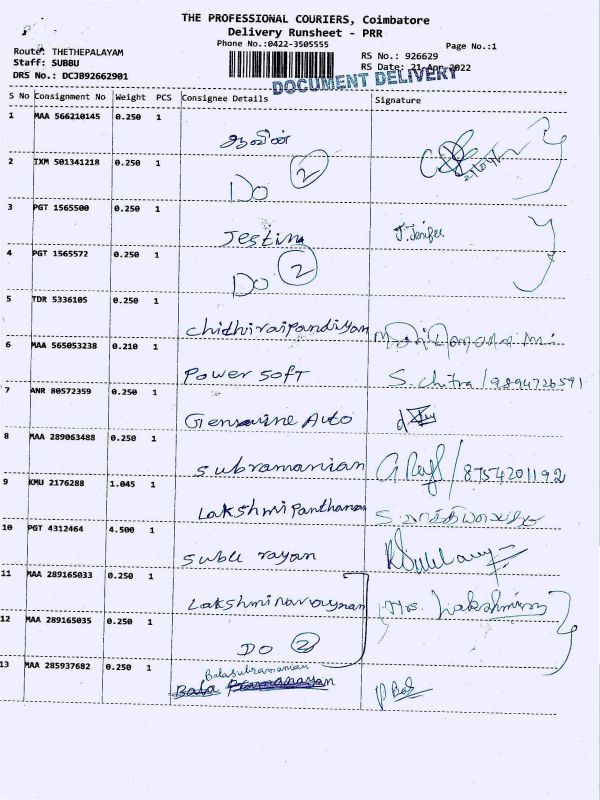 THE PROFESSIONAL COURIERS, Coimbatore
Delivery Runsheet - PRR
Phone No.:0422-3505555
Page No.:1
Route: THETHEPALAYAM
RS No.: 926629
Staff: SUBBU
RS Date: 21-Apr-2022
DRS No.: DCJB92662901
DOCUMENT DELIVERY
S No Consignment No Weight PCS Consignee Details Signature
1 MAA 566210145 0.250 1
2 IXM 501341218 0.250 1 Do 2
3 PGT 1565500 0.250 1 Jestina J. Jenifer
4 PGT 1565572 0.250 1 Do 2
5 TDR 5336105 0.250 1 chidhiraipandiyan
6 MAA 565053238 0.210 1 Power soft S. chitra / 9894726591
7 ANR 80572359 0.250 1 Genuine Auto
8 MAA 289063488 0.250 1 subramanian / 8754201192
9 KMU 2176288 1.045 1 Lakshmipanthanan
10 PGT 4312464 4.500 1 subu rayan
11 MAA 289165033 0.250 1 Lakshminarayanan Mrs.
12 MAA 289165035 0.250 1 Do 2
13 MAA 285937682 0.250 1 Balasubramanian
Bala